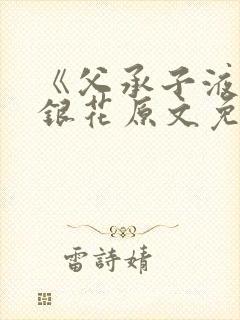 《父承子液
銀花原文免
雷詩婧